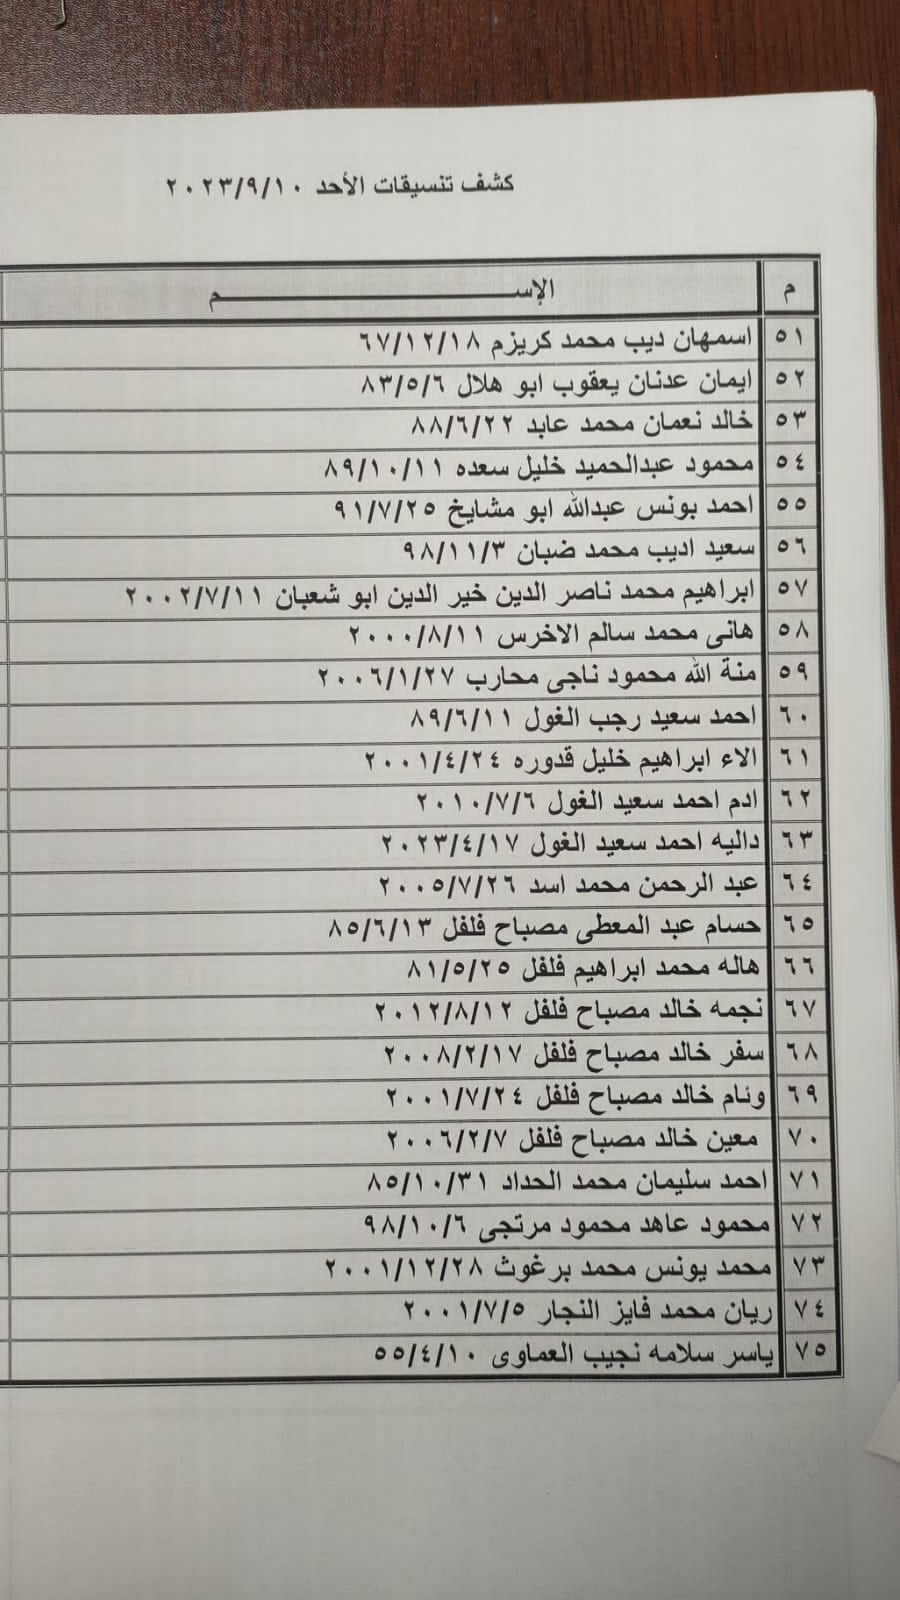 كشف تنسيقات الأحد ٢٠٢٣/٩/١٠
م الإســـــــــــــــــــــم
٥١ اسمهان ديب محمد كريزم ٦٧/١٢/١٨
٥٢ ايمان عدنان يعقوب ابو هلال ٨٣/٥/٦
٥٣ خالد نعمان محمد عابد ٨٨/٦/٢٢
٥٤ محمود عبدالحميد خليل سعده ٨٩/١٠/١١
٥٥ احمد بونس عبدالله ابو مشايخ ٩١/٧/٢٥
٥٦ سعيد اديب محمد ضبان ٩٨/١١/٣
٥٧ ابراهيم محمد ناصر الدين خير الدين ابو شعبان ٢٠٠٢/٧/١١
٥٨ هانى محمد سالم الاخرس ٢٠٠٠/٨/١١
٥٩ منة الله محمود ناجى محارب ٢٠٠٦/١/٢٧
٦٠ احمد سعيد رجب الغول ٨٩/٦/١١
٦١ الاء ابراهيم خليل قدوره ٢٠٠١/٤/٢٤
٦٢ ادم احمد سعيد الغول ٢٠١٠/٧/٦
٦٣ داليه احمد سعيد الغول ٢٠٢٣/٤/١٧
٦٤ عبد الرحمن محمد اسد ٢٠٠٥/٧/٢٦
٦٥ حسام عبد المعطى مصباح فلفل ٨٥/٦/١٣
٦٦ هاله محمد ابراهيم فلفل ٨١/٥/٢٥
٦٧ نجمه خالد مصباح فلفل ٢٠١٢/٨/١٢
٦٨ سفر خالد مصباح فلفل ٢٠٠٨/٢/١٧
٦٩ وئام خالد مصباح فلفل ٢٠٠١/٧/٢٤
٧٠ معين خالد مصباح فلفل ٢٠٠٦/٢/٧
٧١ احمد سليمان محمد الحداد ٨٥/١٠/٣١
٧٢ محمود عاهد محمود مرتجى ٩٨/١٠/٦
٧٣ محمد يونس محمد برغوث ٢٠٠١/١٢/٢٨
٧٤ ريان محمد فايز النجار ٢٠٠١/٧/٥
٧٥ ياسر سلامه نجيب العماوى ٥٥/٤/١٠